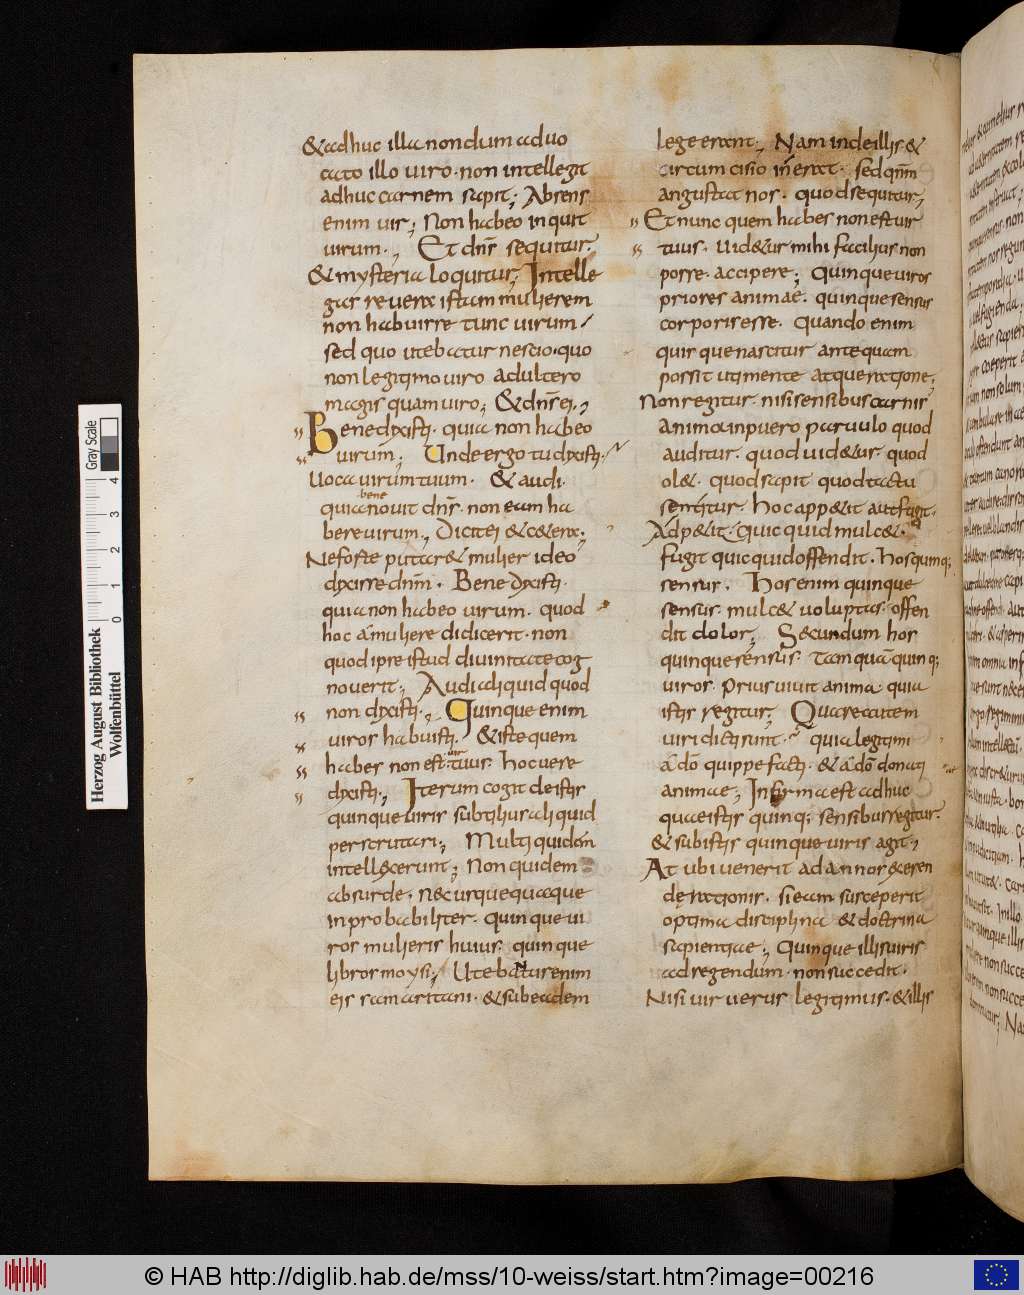 &adhuc illa nondum aduo
cato illo uiro· non intellegit
adhuc carnem sapit; Absens
enim uir; Non habeo inquit
uirum·, Et dnſ sequitur·
& mysteria loquitur; Intelle
gas reuera istam mulierem
non habuisse tunc uirum
sed quo utebatur nescio· quo
non legitimo uiro adultero
magis quam uiro; & dns ei,
Benedixisti· quia non habeo
uirum; Unde ergo tu dixisti·
Uoca uirum tuum· & audi·
quia bene nouit dns· non eam ha
bere uirum·, Dicit ei & cetera;
Ne forte putar& mulier ideo
dixisse dnm· Bene dixisti·
quia non habeo uirum· quod
hoc a muliere didicerit· non
quod ipse istud diuinitate cog
nouerit; Audi aliquid quod
non dixisti·, Quinque enim
uiros habuisti· & iste quem
habes non est tuus uir· hoc uere
dixisti·, Iterum cogit de istis
quinque uiris subtilius aliquid
perscrutari; Multi quidem
intellexerunt; Non quidem
absurde· nec usquequaque
inprobabiliter· quinque ui
ros mulieris huius· quinque
libros moysi; Utebantur enim
eis samaritani· & sub eadem
lege erant·, Nam inde illis &
circumcisio inerat· sed qnm
angustat nos· quod sequitur;
Et nunc quem habes non est uir
tuus· uid&ur mihi facilius non
posse· accipere; Quinque uiros
priores animae· quinque sensus
corporis esse· Quando enim
quisque nascitur antequam
possit uti mente atque ratione;
Non regitur· nisi sensibus carnis
anima in puero paruulo quod
auditur· quod uid&ur· quod
ol&· quod sapit quod tactu
sentitur· hoc app&it aut fugit·
Adp&it· quicquid mulc&·
fugit quicquid offendit· hos quinq;
sensus· Hos enim quinque
sensus· mulc& uoluptas· offen
dit dolor; Secundum hos
quinque sensus· tamquam quinq;
uiros· prius uiuit anima· quia
istis regitur; Quare autem
uiri dicti sunt· quia legitimi
a do quippe facti· & a do donati
animae; Infirma est adhuc
quae istis quinq; sensibus regitur·
& sub istis quinque uiris agit·,
At ubi uenerit ad annos exeren
de rationis· si eam susceperit
optima disciplina & doctrina
sapientiae; Quinque illis uiris
ad regendum· non succedit·
Nisi uir uerus legitimus· & illis
Gray Scale
0 1 2 3 4
Herzog August Bibliothek
Wolfenbüttel
© HAB http://diglib.hab.de/mss/10-weiss/start.htm?image=00216